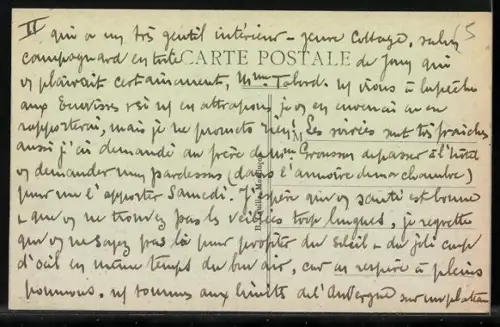 II qui a un très gentil intérieur - genre cottage, salon
campagnard en toile de Jouy qui
CARTE POSTALE
vs plairait certainement, Mme Tabord. ns allons à la pêche
aux écrevisses si ns en attrapons je vs en enverrai ou en
rapporterai, mais je ne promets rien! Les soirées sont très fraîches
aussi j'ai demandé au frère de Mme Grousson de passer à l'hôtel
vs demander mon pardessus (dans l'armoire de ma chambre)
pour me l'apporter Samedi. J'espère que vs santé est bonne
& que vs ne trouvez pas les veillées trop longues, je regrette
que vs ne soyez pas là pour profiter du Soleil & du joli coup
d'œil en même temps du bon air, car on respire à pleins
poumons. ns sommes aux limites de l'Auvergne sur un plateau